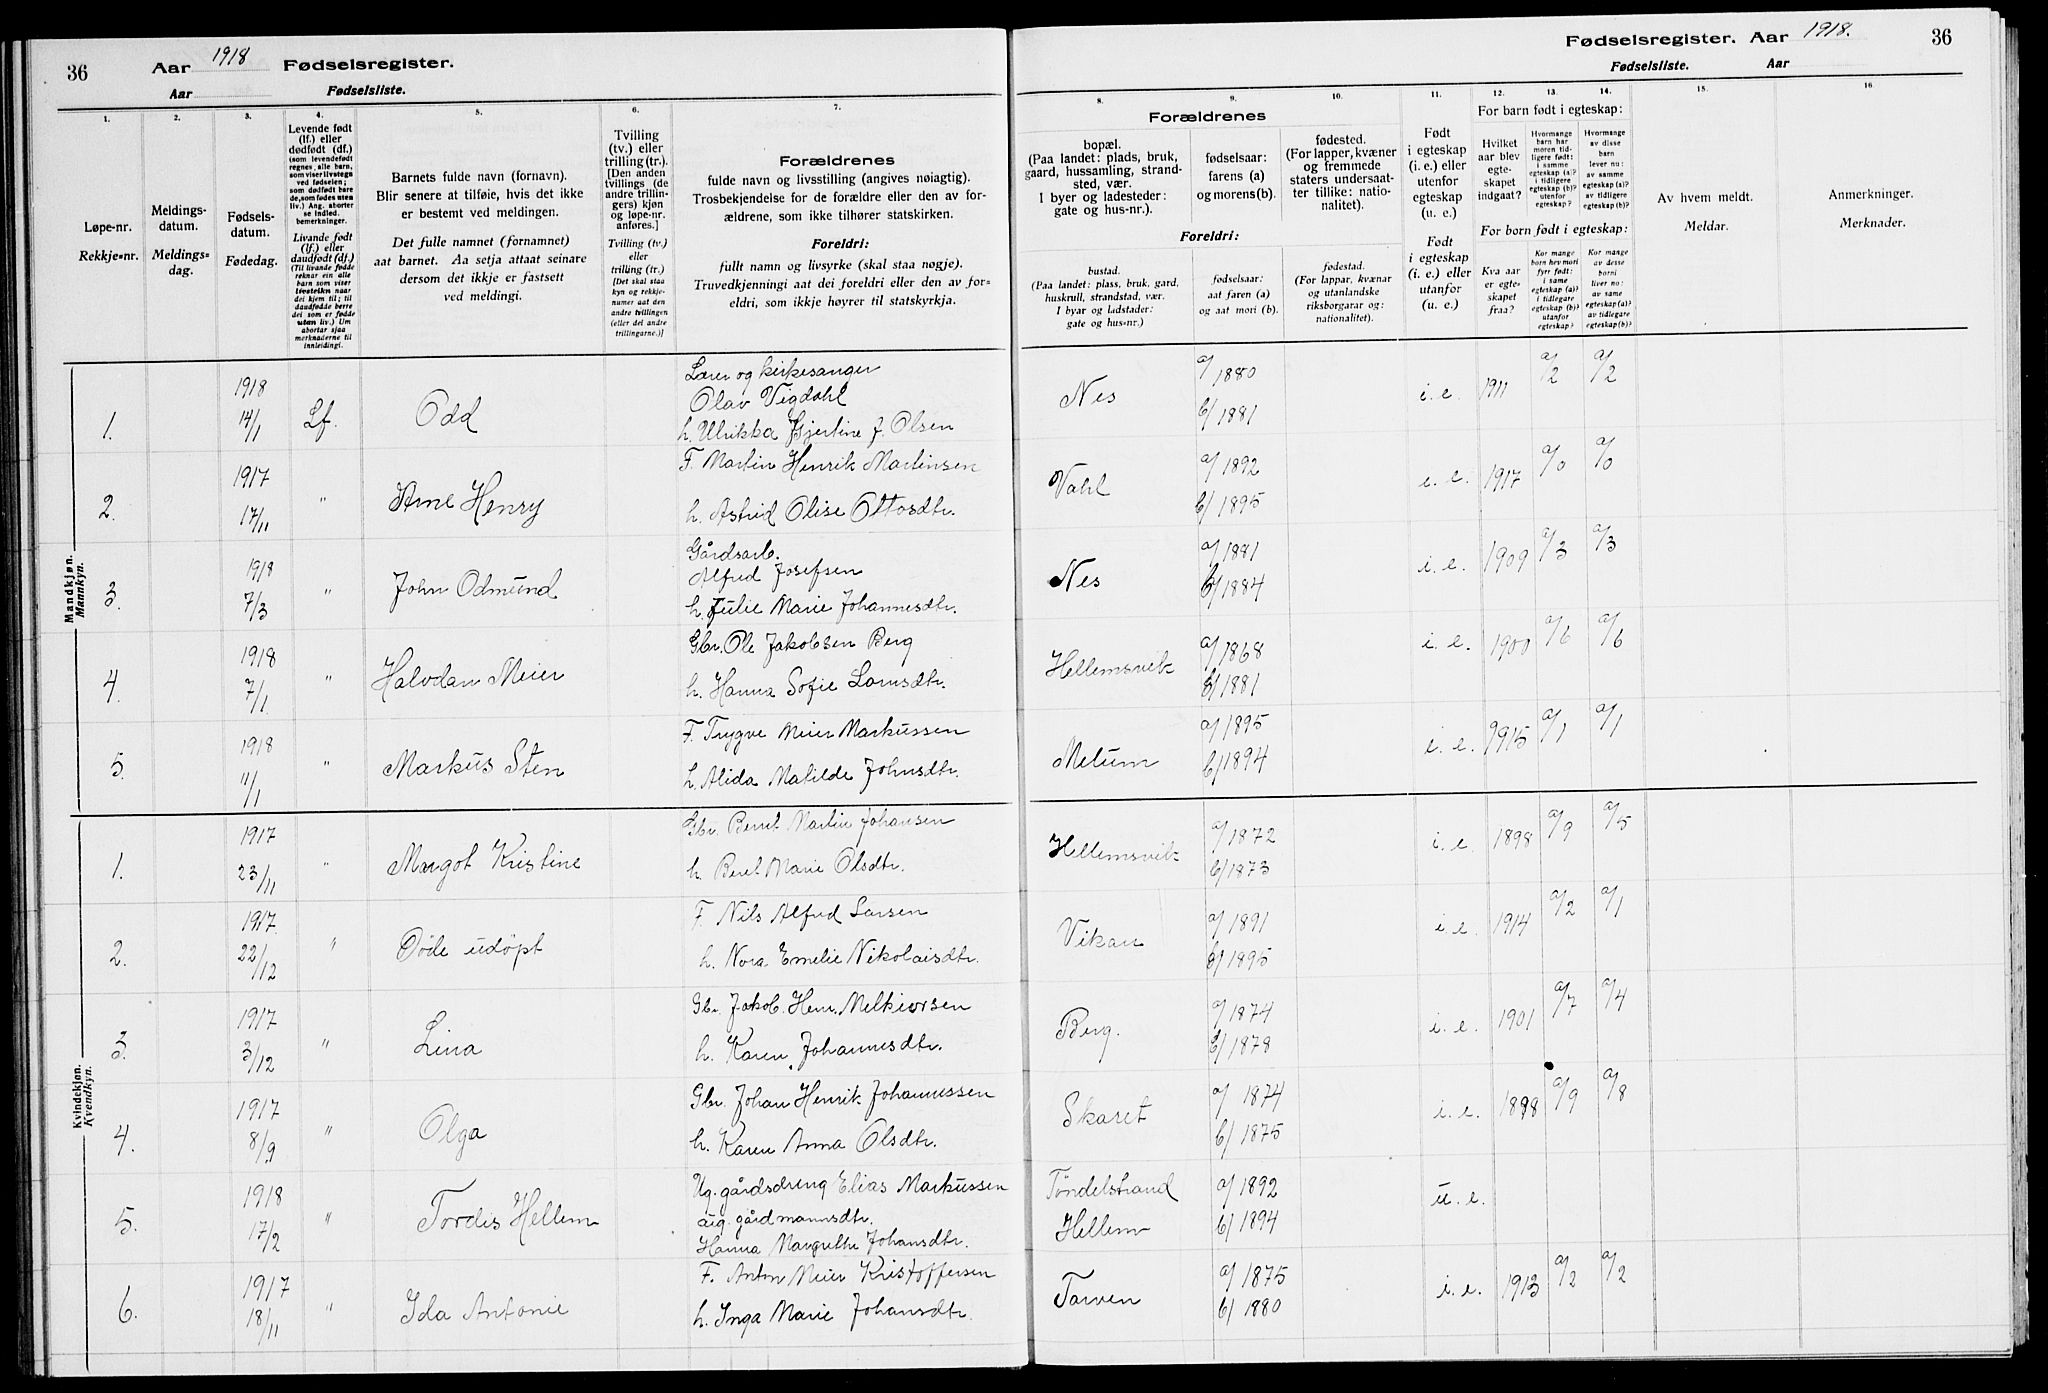 36
Aar 1918 Fødselsregister.
Aar Fødselsliste.
1.
2.
3.
4.
5.
6.
7.
Løpe-nr.
Rekkje-nr.
Meldings-
datum.
Meldings-
dag.
Fødsels-
datum.
Fødedag.
Levende født
(lf.) eller
dødfødt (df.)
(som levendefødt
regnes alle barn,
som viser livstegn
ved fødselen;
som dødfødt bare
de, som fødes uten
liv.) Ang. aborter
se Indled.
bemerkninger.
Livande født
(lf.) eller
daudfødt (df.)
(Til livande fødde
reknar ein alle
barn som viser
livsteikn naar
dei kjem til; til
daudfødde berre
dei som er fødde
utan liv.) Um
abortar sjaa
merknaderne til
innleidingi.
Barnets fulde navn (fornavn).
Blir senere at tilføie, hvis det ikke
er bestemt ved meldingen.
Det fulle namnet (fornamnet)
aat barnet. Aa setja attaat seinare
dersom det ikkje er fastsett
ved meldingi.
Tvilling
(tv.) eller
trilling (tr.).
[Den anden
tvillings (de
andre trillin-
gers) kjøn
og løpe-nr.
anføres.]
Tvilling (tv.)
eller
trilling (tr.)
[Det skal staa
kyn og rekkje-
numer aat den
andre tvillingen
(eller dei andre
trillingarne.)]
Forældrenes
fulde navn og livsstilling (angives nøiagtig).
Trosbekjendelse for de forældre eller den av for-
ældrene, som ikke tilhører statskirken.
Foreldri:
fullt namn og livsyrke (skal staa nøgje).
Truvedkjenningi aat dei foreldri eller den av for-
eldri, som ikkje høyrer til statskyrkja.
Mandkjøn.
Mannkyn.
1. 1918 14/1 Lf. Odd
Lærer og kirkesanger
Olav Vigdahl
h. Ulrikka Hjertine J. Olsen
2. 1917 17/11 " Arne Henry
F. Martin Henrik Martinsen
h. Astrid Olise Ottosdtr.
3. 1918 7/3 " John Odmund
Gårdsarb.
Alfred Josefsen
h. Julie Marie Johannesdtr.
4. 1918 7/1 " Halvdan Meier
Gbr. Ole Jakobsen Berg
h. Hanna Sofie Larsdtr.
5. 1918 11/1 " Markus Sten
F. Trygve Meier Markussen
h. Alida Matilde Johnsdtr.
Kvindekjøn.
Kvendkyn.
1. 1917 23/11 " Margot Kristine
Gbr. Bernt Martin Johansen
h. Beret Marie Olsdtr.
2. 1917 22/12 " Døde udøpt
F. Nils Alfred Larsen
h. Nora Emelie Nikolaisdtr.
3. 1917 3/12 " Lina
Gbr. Jakob Hen. Melkiorsen
h. Karen Johannesdtr.
4. 1917 8/9 " Olga
Gbr. Johan Henrik Johannessen
h. Karen Anna Olsdtr.
5. 1918 17/2 " Tordis Hellem
Ug. gårdsdreng Elias Markussen
ug. gårdmannsdtr.
Hanna Margrethe Johansdtr.
6. 1917 18/11 " Ida Antonie
F. Anton Meier Kristoffersen
h. Inga Marie Johansdtr.
Fødselsregister. Aar 1918. 36
Fødselsliste. Aar
8.
9.
10.
11.
12.
13.
14.
15.
16.
Forældrenes
bopæl.
(Paa landet: plads, bruk,
gaard, hussamling, strand-
sted, vær.
I byer og ladesteder:
gate og hus-nr.).
fødselsaar:
farens (a)
og morens (b).
fødested.
(For lapper, kvæner
og fremmede
staters undersaat-
ter tillike: natio-
nalitet).
Foreldri:
bustad.
(Paa landet: plass, bruk, gard,
huskrull, strandstad, vær.
I byar og ladstader:
gate og hus-nr.)
fødselsaar:
aat faren (a)
og aat mori (b).
fødestad.
(For lappar, kvænar
og utanlandske
riksborgarar og:
nationalitet).
Født
i egteskap
(i. e.) eller
utenfor
egteskap
(u. e.)
Født
i egteskap
(i. e.) eller
utanfor
(u. e.)
For barn født i egteskap:
Hvilket
aar blev
egte-
skapet
indgaat?
Hvormange
barn har
moren tid-
ligere født:
i samme
egteskap (a)?
i tidligere
egteskap (b)?
utenfor
egteskap?
Hvormange
av disse
barn
lever nu:
av samme
egteskap (a)?
av tidligere
egteskap (b)?
For born født i egteskap:
Kva aar
er egte-
skapet
fraa?
Kor mange
born hev mori
fyrr født:
i same
egteskap (a)?
i tidlegare
egteskap (b)?
utanfor
egteskap?
Kor mange
av desse
borni
liver no:
av same
egteskap (a)?
av tidlegare
egteskap (b)?
Av hvem meldt.
Meldar.
Anmerkninger.
Merknader.
Nes a/1880 b/1881 i. e. 1911 a/2 a/2
Vahl a/1892 b/1895 i. e. 1917 a/0 a/0
Nes a/1881 b/1884 i. e. 1909 a/3 a/3
Hellemsvik a/1868 b/1881 i. e. 1900 a/6 a/6
Melum a/1895 b/1894 i. e. 1915 a/1 a/1
Hellemsvik a/1872 b/1873 i. e. 1898 a/9 a/5
Vikan a/1891 b/1895 i. e. 1914 a/2 a/1
Berg. a/1874 b/1878 i. e. 1901 a/7 a/4
Skaret a/1874 b/1875 i. e. 1898 a/9 a/8
Tøndelstrand a/1892 u. e.
Hellem b/1894
Tarven a/1875 b/1880 i. e. 1913 a/2 a/2